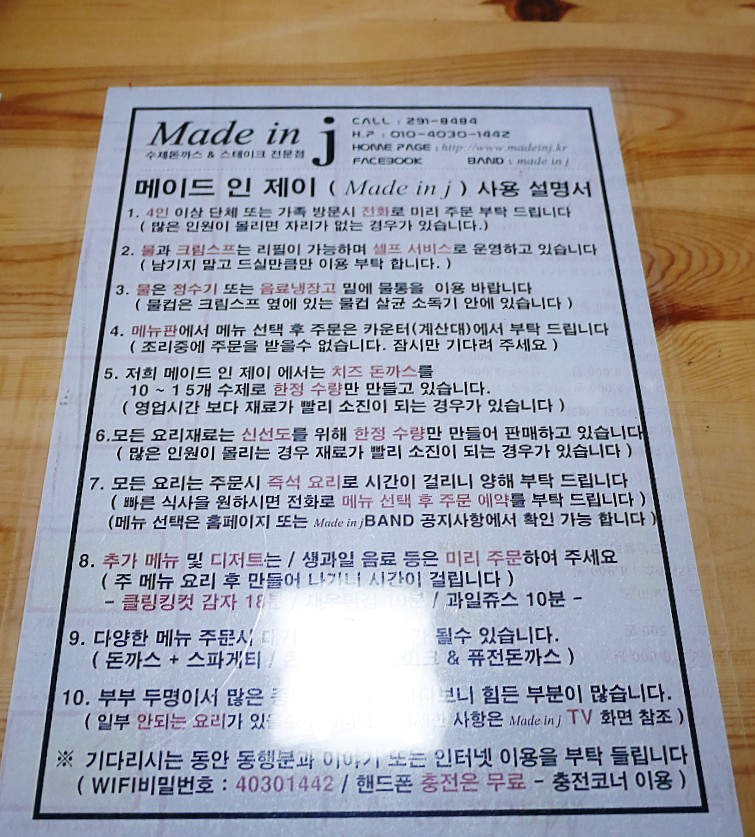 Made in j
수제돈까스 & 스테이크 전문점
CALL : 291-8484
H.P : 010-4030-1442
HOME PAGE : http://www.madeinj.kr
FACEBOOK BAND : made in j
메이드 인 제이 ( Made in j ) 사용 설명서
1. 4인 이상 단체 또는 가족 방문시 전화로 미리 주문 부탁 드립니다
( 많은 인원이 몰리면 자리가 없는 경우가 있습니다.)
2. 물과 크림스프는 리필이 가능하며 셀프 서비스로 운영하고 있습니다
( 남기지 말고 드실만큼만 이용 부탁 합니다. )
3. 물은 정수기 또는 음료냉장고 밑에 물통을 이용 바랍니다
( 물컵은 크림스프 옆에 있는 물컵 살균 소독기 안에 있습니다 )
4. 메뉴판에서 메뉴 선택 후 주문은 카운터(계산대)에서 부탁 드립니다
( 조리중에 주문을 받을수 없습니다. 잠시만 기다려 주세요 )
5. 저희 메이드 인 제이 에서는 치즈 돈까스를
10 ~ 15개 수제로 한정 수량만 만들고 있습니다.
( 영업시간 보다 재료가 빨리 소진이 되는 경우가 있습니다 )
6.모든 요리재료는 신선도를 위해 한정 수량만 만들어 판매하고 있습니다
( 많은 인원이 몰리는 경우 재료가 빨리 소진이 되는 경우가 있습니다 )
7. 모든 요리는 주문시 즉석 요리로 시간이 걸리니 양해 부탁 드립니다
( 빠른 식사을 원하시면 전화로 메뉴 선택 후 주문 예약를 부탁 드립니다 )
(메뉴 선택은 홈페이지 또는 Made in j BAND 공지사항에서 확인 가능 합니다 )
8. 추가 메뉴 및 디저트는 / 생과일 음료 등은 미리 주문하여 주세요
( 주 메뉴 요리 후 만들어 나가니 시간이 걸립니다 )
- 클링킹컷 감자 18분 / 10분 / 과일쥬스 10분 -
9. 다양한 메뉴 주문시 될수 있습니다.
( 돈까스 + 스파게티 / & 퓨전돈까스 )
10. 부부 두명이서 많은 힘든 부분이 많습니다.
( 일부 안되는 요리가 사항은 Made in j TV 화면 참조 )
※ 기다리시는 동안 동행분과 이야기 또는 인터넷 이용을 부탁 들립니다
( WIFI비밀번호 : 40301442 / 핸드폰 충전은 무료 - 충전코너 이용 )